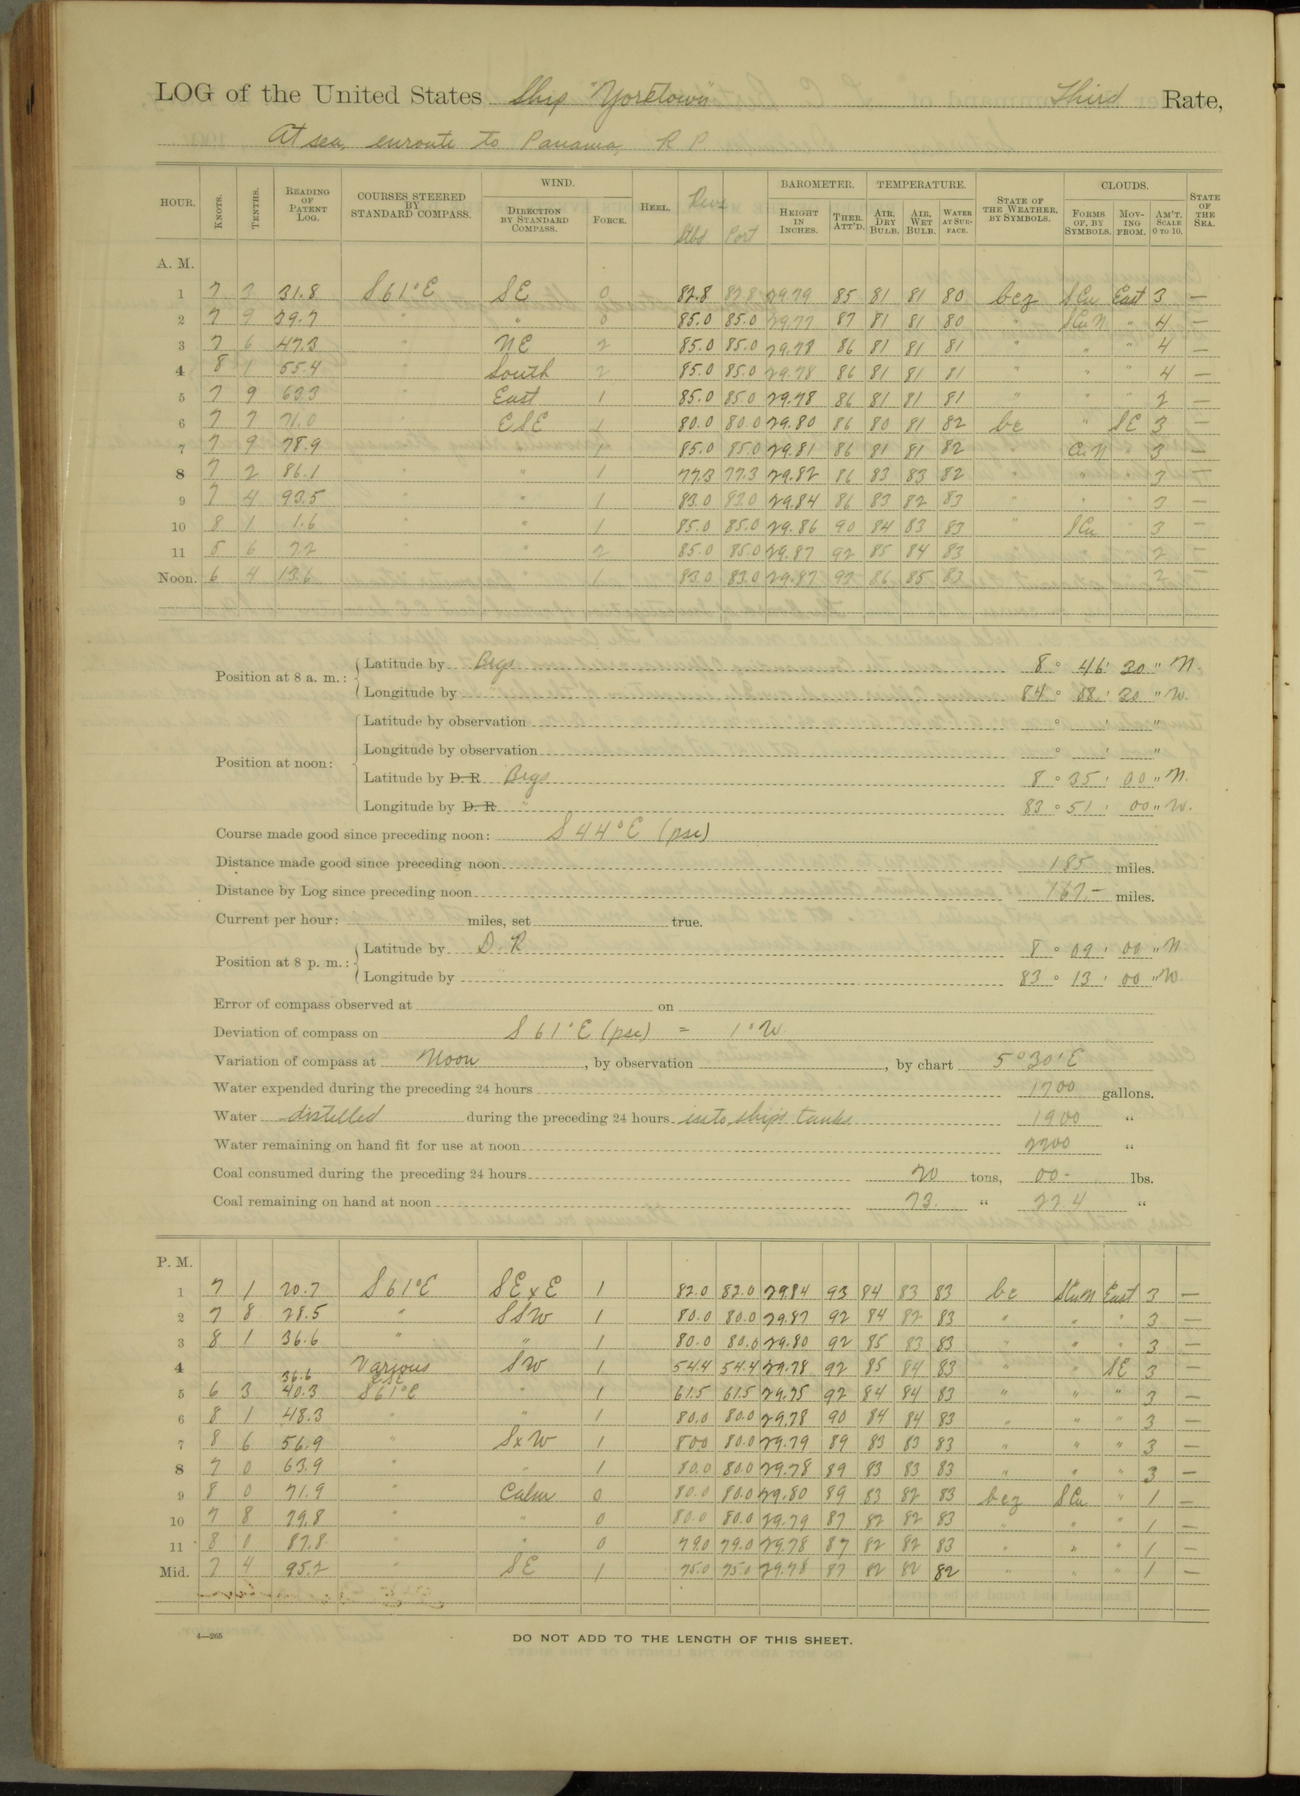 LOG of the United States Ship "Yorktown" Third Rate,
At sea, enroute to Panama, R P.
HOUR. KNOTS. TENTHS. READING OF PATENT LOG. COURSES STEERED BY STANDARD COMPASS. WIND. DIRECTION BY STANDARD COMPASS. FORCE. HEEL. Revs Stbd Port BAROMETER. HEIGHT IN INCHES. THER. ATT'D. TEMPERATURE. AIR, DRY BULB. AIR, WET BULB. WATER AT SURFACE. STATE OF THE WEATHER, BY SYMBOLS. CLOUDS. FORMS OF, BY SYMBOLS. MOVING FROM. AM'T. SCALE 0 TO 10. STATE OF THE SEA.
A. M.
1 7 31.8 S 61° E SE 0 82.8 82.8 29.79 85 81 81 80 bcz S.Cu East 3 —
2 7 9 39.7 " " 0 85.0 85.0 29.77 87 81 81 80 " S.Cu.N " 4 —
3 7 6 47.3 " NE 2 85.0 85.0 29.78 86 81 81 81 " " " 4 —
4 8 1 55.4 " South 2 85.0 85.0 29.78 86 81 81 81 " " " 4 —
5 7 9 63.3 " East 1 85.0 85.0 29.78 86 81 81 81 " " " 2 —
6 7 7 71.0 " ESE 1 80.0 80.0 29.80 86 80 81 82 bc " SE 3 —
7 7 9 78.9 " " 1 85.0 85.0 29.81 86 81 81 82 " Cu.N " 3 —
8 7 2 86.1 " " 1 77.3 77.3 29.82 86 83 83 82 " " " 3 —
9 7 4 93.5 " " 1 83.0 83.0 29.84 86 83 82 83 " " " 3 —
10 8 1 1.6 " " 1 85.0 85.0 29.86 90 84 83 83 " S.Cu " 3 —
11 5 6 7.2 " " 2 85.0 85.0 29.87 92 85 84 83 2 —
Noon. 6 4 13.6 1 83.0 83.0 29.87 92 86 85 83 2 —
Position at 8 a. m.: Latitude by Brgs 8° 46' 30" N.
Longitude by " 84° 08' 30" W.
Position at noon: Latitude by observation ° ' "
Longitude by observation ° ' "
Latitude by D. R Brgs 8° 35' 00" N.
Longitude by D. R " 83° 51' 00" W.
Course made good since preceding noon: S 44° E (psc)
Distance made good since preceding noon 185 miles.
Distance by Log since preceding noon 167.— miles.
Current per hour: miles, set true.
Position at 8 p. m.: Latitude by D. R 8° 09' 00" N
Longitude by 83° 13' 00" W.
Error of compass observed at on
Deviation of compass on S 61° E (psc) = 1° W.
Variation of compass at Noon, by observation , by chart 5° 30' E
Water expended during the preceding 24 hours 1700 gallons.
Water distilled during the preceding 24 hours into ship's tanks 1900 "
Water remaining on hand fit for use at noon 2200 "
Coal consumed during the preceding 24 hours 20 tons, 00- lbs.
Coal remaining on hand at noon 73. " 224 "
P. M.
1 7 1 20.7 S 61° E SE x E 1 82.0 82.0 29.84 93 84 83 83 bc S.Cu.N East 3 —
2 7 8 28.5 " SSW 1 80.0 80.0 29.87 92 84 82 83 " " " 3 —
3 8 1 36.6 " " 1 80.0 80.0 29.80 92 85 83 83 " " " 3 —
4 Various SW 1 54.4 54.4 29.78 92 85 84 83 " " SE 3 —
36.6 ESE
5 6 3 40.3 S 61° E " 1 61.5 61.5 29.75 92 84 84 83 " " " 3 —
6 8 1 48.3 " " 1 80.0 80.0 29.78 90 84 84 83 " " " 3 —
7 8 6 56.9 " S x W 1 80.0 80.0 29.79 89 83 83 83 " " " 3 —
8 7 0 63.9 " " 1 80.0 80.0 29.78 89 83 83 83 " " " 3 —
9 8 0 71.9 " Calm 0 80.0 80.0 29.80 89 83 82 83 bcz S.Cu " 1 —
10 7 8 79.8 " " 0 80.0 80.0 29.79 87 82 82 83 " " " 1 —
11 8 0 87.8 " " 0 79.0 79.0 29.78 87 82 82 83 " " " 1 —
Mid. 7 4 95.2 " SE 1 75.0 75.0 29.78 87 82 82 82 " " " 1 —
4—265
DO NOT ADD TO THE LENGTH OF THIS SHEET.